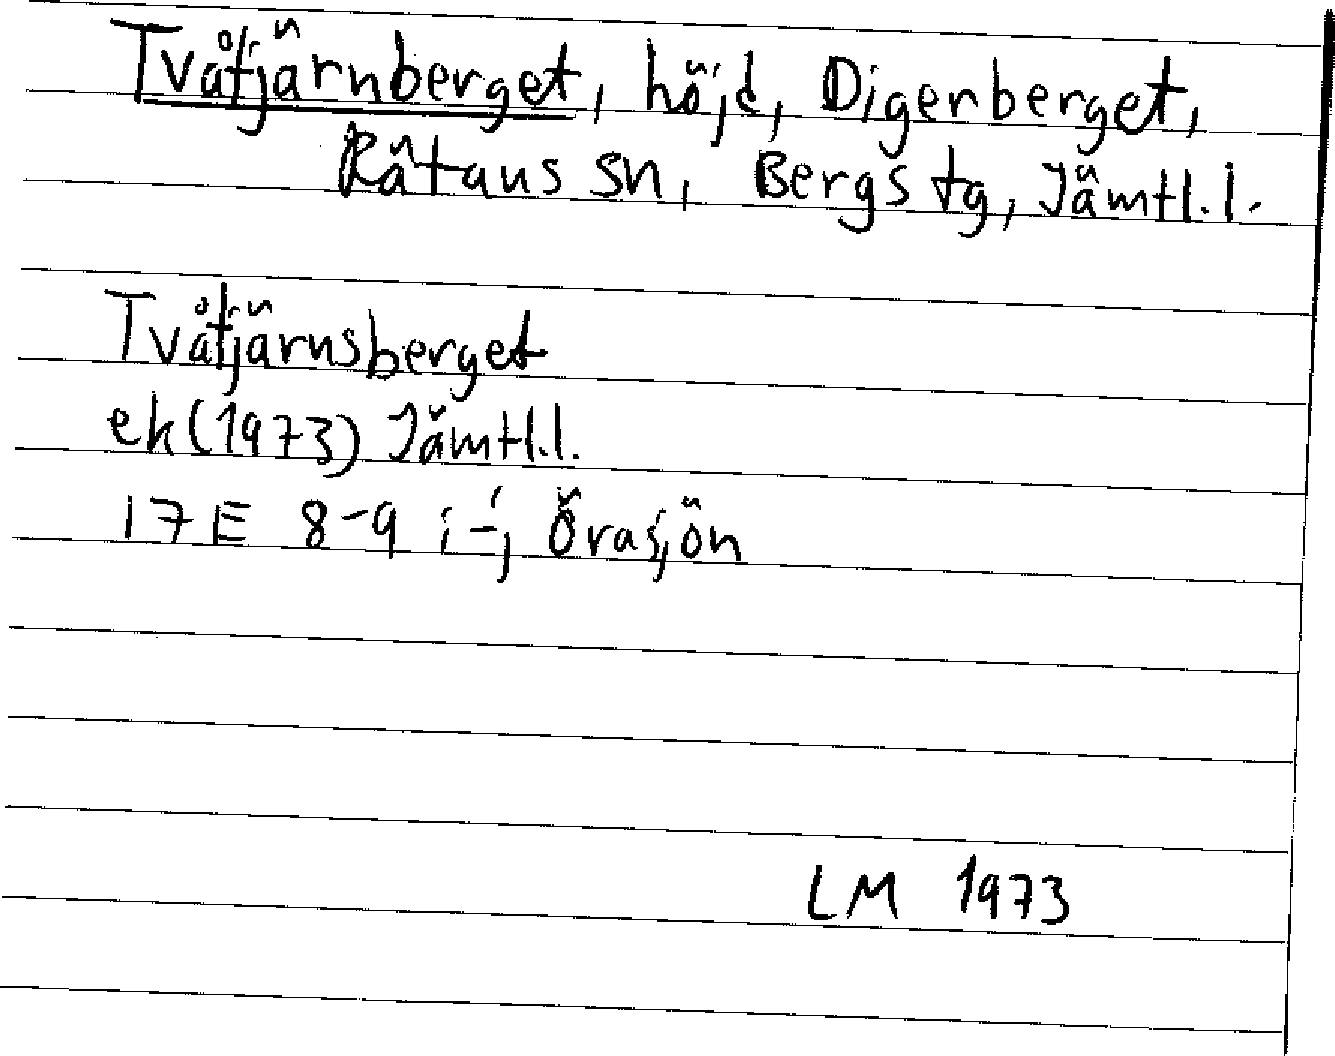 Tvåtjärnberget, höjd, Digerberget,
Rätans sn, Bergs tg, Jämtl.l.
Tvåtjärnsberget
ek (1973) Jämtl.l.
17E 8-9 i-j Örasjön
LM 1973